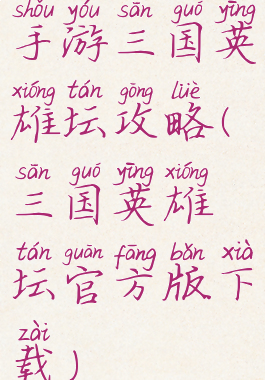 shǒu yóu sān guó yīng
手游三国英
xióng tán gōng lüè
雄坛攻略(
sān guó yīng xióng
三国英雄
tán guān fāng bǎn xià
坛官方版下
zài
载)